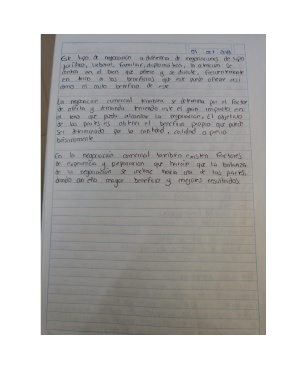 04 oct 2018
Este tipo de negociación a diferencia de negociaciones de tipo
jurídico, laboral, familiar, diplomáticos, la atención se
centra en el bien que ofrece y se discute, frecuentemente
en torno a los beneficios que este puede ofrecer así
como el costo beneficio de este.
La negociación comercial también se determina por el factor
de oferta y demanda teniendo este el gran impacto en
la zona que pueda alcanzar la negociación, el objetivo
de las partes es obtener el beneficio propio que puede
ser determinado por la cantidad, calidad o precio
En la negociación comercial también existen factores
de experiencia y preparación que hacen que la balanza
de la negociación se incline hacia una de las partes,
dando con ello mayor beneficio y mejores resultados.